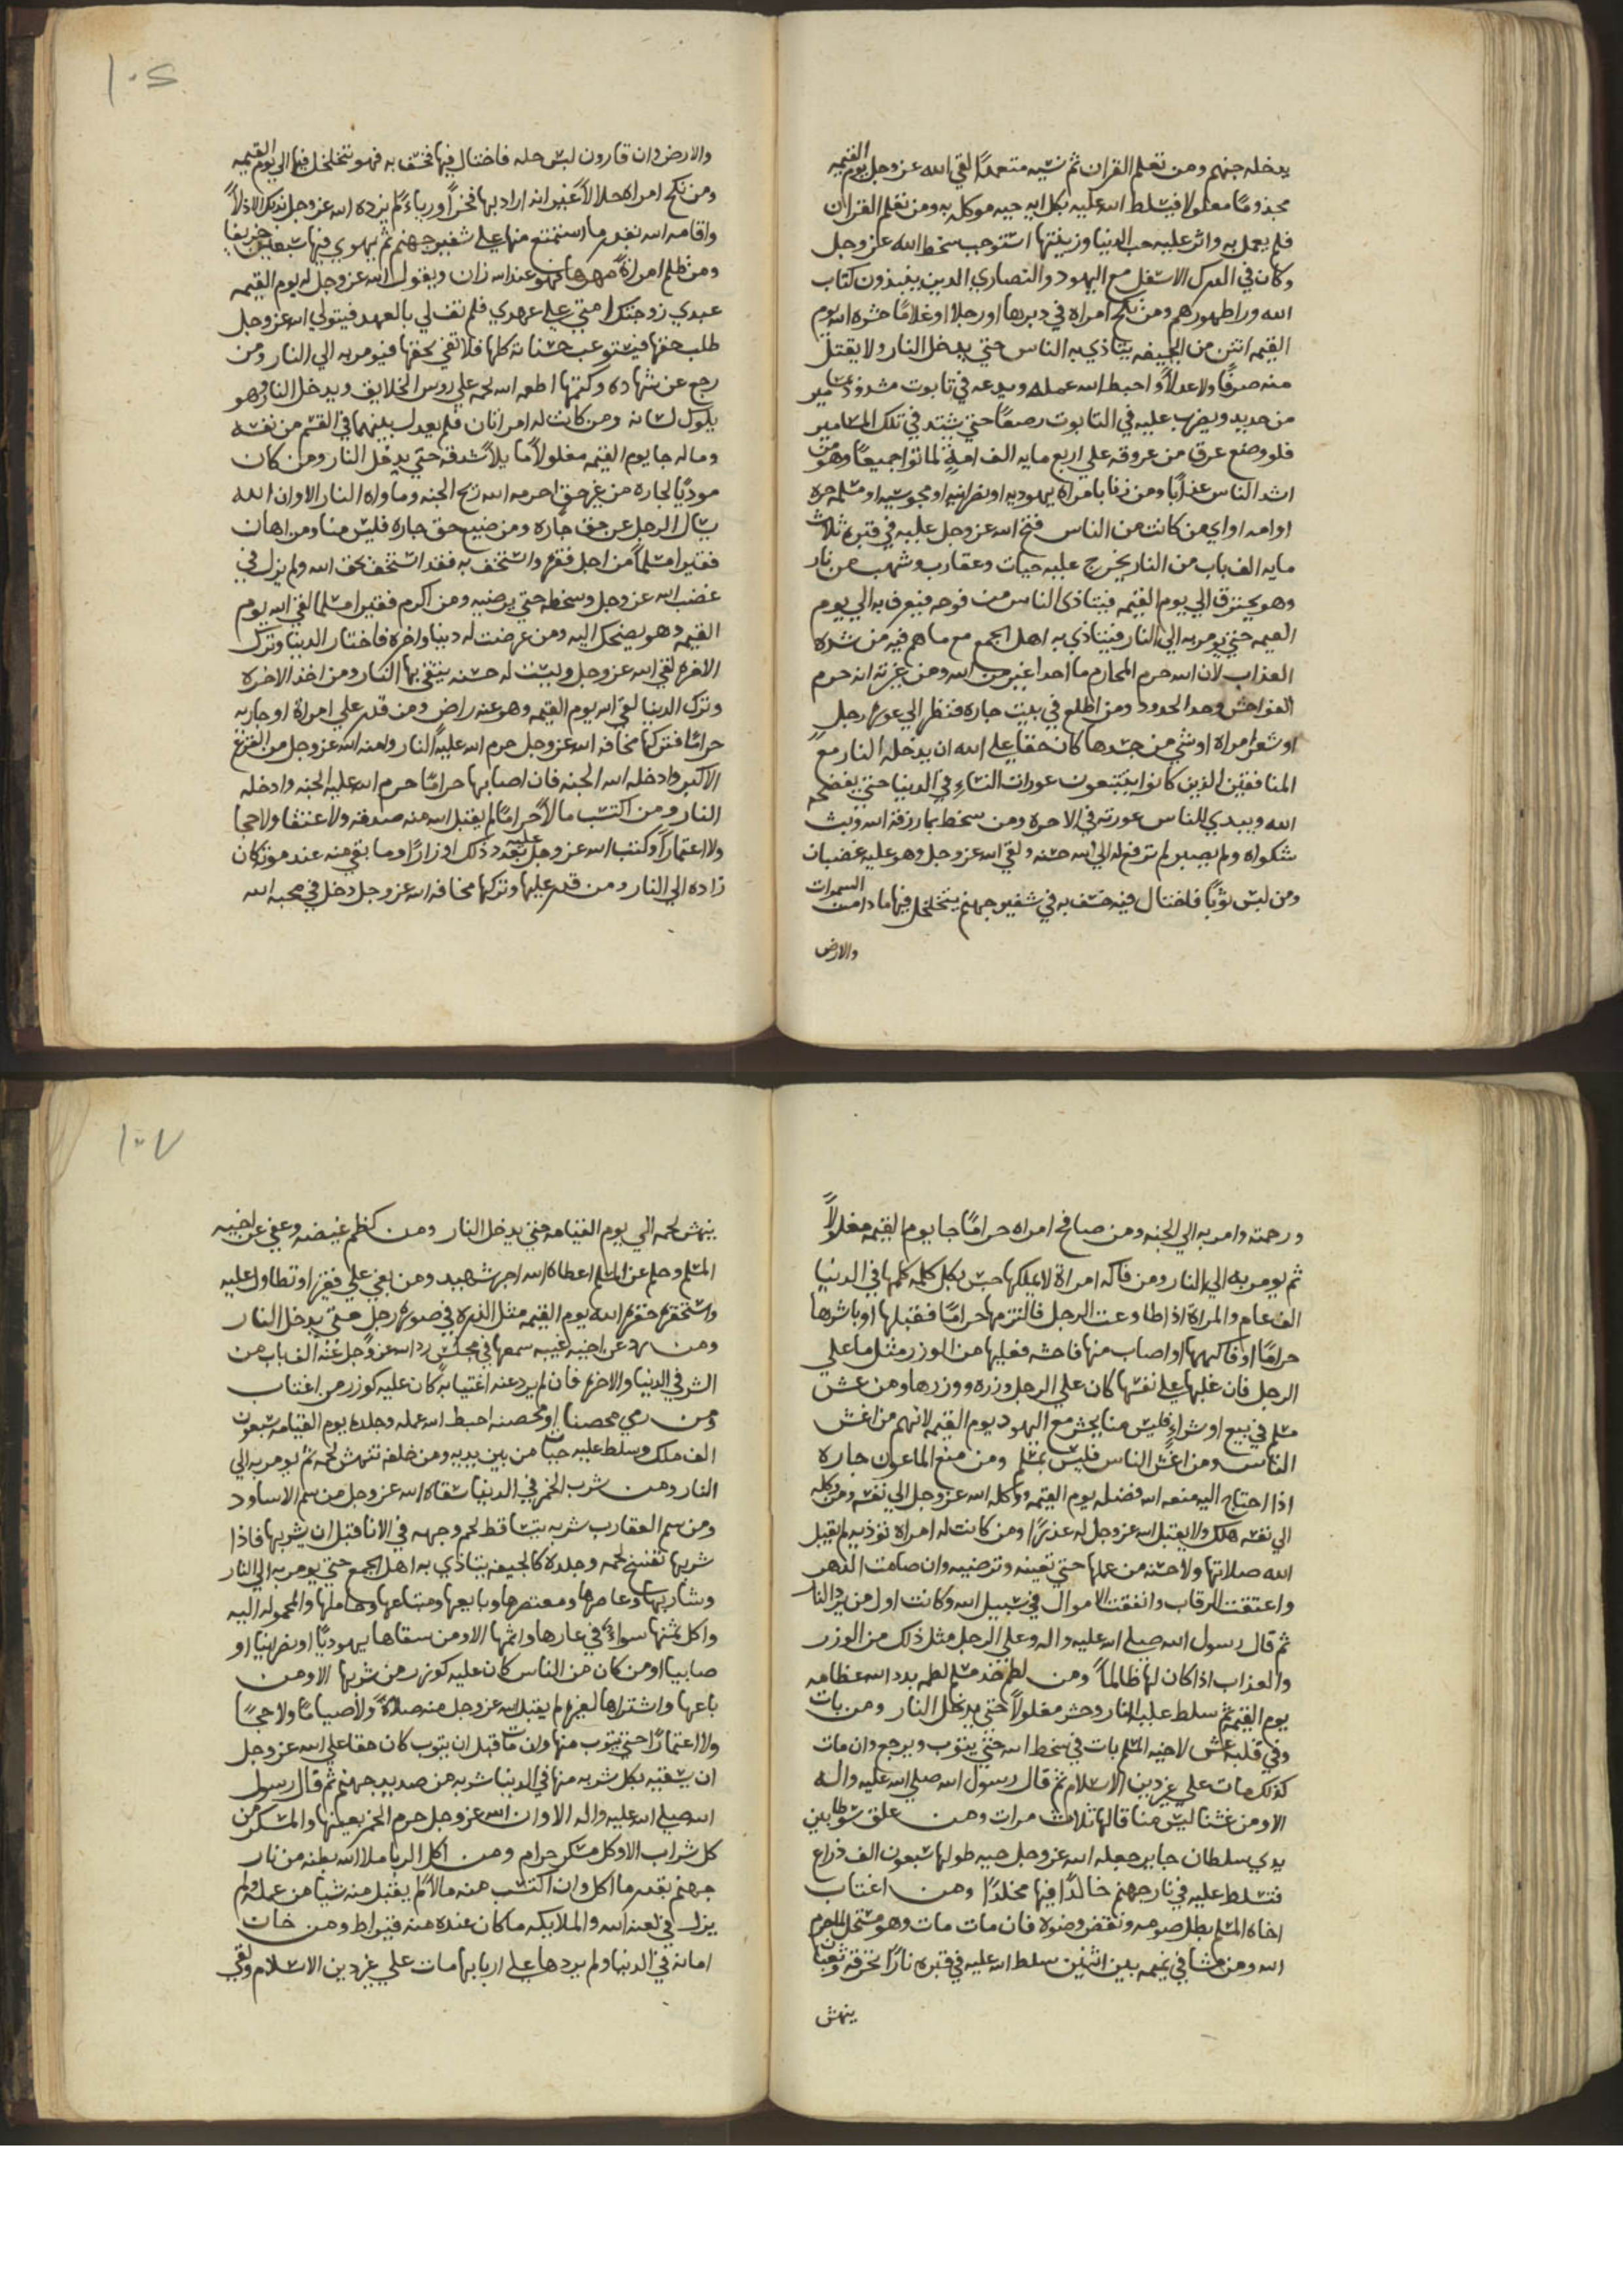 يدخله جهنم ومن تعلم القران ثم نسيه متعمدًا لقي الله عز وجل يوم القيمه
مجذومًا مغلولا فيسلط الله عليه بكل ايه حيه موكله به ومن تعلم القران
فلم يعمل به واثر عليه حب الدنيا وزينتها استوجب سخط الله عز وجل
وكان في الدرك الاسفل مع اليهود والنصاري الدين ينبذون كتاب
الله ورا ظهورهم ومن نكح امراه في دبرها او رجلا او غلامًا حشره الله يوم
القيمه انتن من الجيفه يتاذي به الناس حتي يدخل النار ولا يقتل
منه صرفًا ولا عدلاً واحبط الله عمله ويدعه في تابوت مشدود بمسامير
من حديد ويضرب عليه في التابوت حتي يشتد في تلك المسامير
فلو وضع عرق من عروقه علي اربع مايه الف امة لماتوا جميعًا وهو من
اشد الناس عذابًا ومن زنا بامراه يهوديه او نصرانيه او مجوسيه او مسلمه حره
او امه او اي من كانت من الناس فتح الله عز وجل عليه في قبره ثلاث
مايه الف باب من النار يخرج عليه حيات وعقارب وشهب من نار
وهو يحترق الي يوم القيمه فيتاذى الناس من فرجه فيعرف به الي يوم
القيمه حتي يومر به الي النار فيتاذي به اهل الجمع مع ما هم فيه من شده
العذاب لان الله حرم المحارم ما احدا اغير من الله ومن غيرته انه حرم
الفواحش وحد الحدود ومن اطلع في بيت جاره فنظر الي عورة رجل
او شعر امراه او شي من جسدها كان حقا علي الله ان يدخله النار مع
المنافقين الذين كانوا يتتبعون عورات النساءِ في الدنيا حتي يفضحه
الله ويبدي للناس عورته في الاخره ومن سخط بما رزقه الله وبث
شكواه ولم يصبر لم ترفع له الي الله حسنه ولقي الله عز وجل وهو عليه غضبان
ومن لبس ثوبًا فاختال فيه خسف به في شفير جهنم يتخلخل فيها ما دامت السموات
والارض
والارض وان قارون لبس حله فاختال فيها فخسف به فهو يتخلخل فيها الي يوم القيمه
ومن نكح امراه حلالاً غير انه اراد بها فخرًا ورياءً لم يزده الله عز وجل بذلك الا ذلاً
واقامه الله بقدر ما استمتع منها علي شفير جهنم ثم يهوي فيها سبعين خريفا
ومن ظلم امراةً مهرها فهو عند الله زان ويقول الله عز وجل له يوم القيمه
عبدي زوجتك امتي علي عهدي فلم تف لي بالعهد فيتولي الله عز وجل
طلب حقها فيستوعب حسناته كلها فلا تفي بحقها فيومر به الي النار ومن
رجع عن شهاده وكتمها اطعمه الله لحمه علي روس الخلايق ويدخل النار وهو
يلوك لسانه ومن كانت له امراتان فلم يعدل بينهما في القسم من نفسه
وماله جا يوم القيمه مغلولاً مايلاً شدقه حتي يدخل النار ومن كان
موديًا لجاره من غير حق احرمه الله ريح الجنه وماواه النار الا وان الله
يسال الرجل عن حق جاره ومن ضيع حق جاره فليس منا ومن اهان
فقيرا مسلمًا من اجل فقره واستخف به فقد استخف بحق الله ولم يزل في
غضب الله عز وجل وسخطه حتي يرضيه ومن اكرم فقيرا مسلما لقي الله يوم
القيمه وهو يضحك اليه ومن عرضت له دنيا واخره فاختار الدنيا وترك
الاخره لقي الله عز وجل وليست له حسنه يتقي بها النار ومن اخذ الاخره
وترك الدنيا لقي الله يوم القيمه وهو عنه راض ومن قدر علي امراة او جاريه
حرامًا فتركها مخافه الله عز وجل حرم الله عليه النار وامنه الله عز وجل من الفزع
الاكبر وادخله الله الجنه فان اصابها حرامًا حرم الله عليه الجنه وادخله
النار ومن اكتسب مالاً حرامًا لم يقبل الله منه صدقه ولا عتقا ولا حجا
ولا اعتمارًا وكتب الله عز وجل عليه بعدد ذلك اوزارًا وما بقي منه عند موته كان
زاده الي النار ومن قدر عليها وتركها مخافه الله عز وجل دخل في محبه الله
ورحمته وامر به الي الجنه ومن صافح امراه حرامًا جا يوم القيمه مغلولاً
ثم يومر به الي النار ومن فاكه امراة لا يملكها حبس بكل كلمه كلمها في الدنيا
الف عام والمراة اذا طاوعت الرجل فالتزمها حرامًا فقبلها او باشرها
حرامًا او فاكهها او اصاب منها فاحشه فعليها من الوزر مثل ما علي
الرجل فان غلبها علي نفسها كان علي الرجل وزره ووزرها ومن غش
مسلم في بيع او شراءٍ فليس منا يحشر مع اليهود يوم القيمه لانهم من اغش
الناس ومن اغش الناس فليس بمسلم ومن منع الماعون جاره
اذا احتاج اليه منعه الله فضله يوم القيمه ووكله الله عز وجل الي نفسه ومن وكله
الي نفسه هلك ولا يقبل الله عز وجل له عذرًا ومن كانت له امراة توذيه لم يقبل
الله صلاتها ولا حسنه من عملها حتي تعينه وترضيه وان صامت الدهر
واعتقت الرقاب وانفقت الاموال في سبيل الله وكانت اول من يرد النار
ثم قال رسول الله صلي الله عليه واله وعلي الرجل مثل ذلك من الوزر
والعذاب اذا كان لها ظالماً ومن لطم خد مسلم لطمه بدد الله عظامه
يوم القيمه ثم سلط عليه النار وحشر مغلولاً حتي يدخل النار ومن بات
وفي قلبه غش لاخيه المسلم بات في سخط الله حتي يتوب ويرجع وان مات
كذلك مات علي غير دين الاسلام ثم قال رسول الله صلي الله عليه واله
الا ومن غشنا ليس منا قالها ثلاث مرات ومن علق سوطا بين
يدي سلطان جاير جعله الله عز وجل حيه طولها سبعون الف ذراع
فتسلط عليه في نار جهنم خالدًا فيها مخلدًا ومن اغتاب
اخاه المسلم بطل صومه ونقض وضوه فان مات مات وهو مستحل لما حرم
الله ومن مشا في نميمه بين اثنين سلط الله عليه في قبره نارًا تحرقه وثعبانا
ينهش
ينهش لحمه الي يوم القيامه حتي يدخل النار ومن كظم غيضه وعفي عن اخيه
المسلم وحلم عن المسلم اعطاه الله اجر شهيد ومن بغي علي فقير او تطاول عليه
واستحقره حقره الله يوم القيمه مثل الذره في صورة رجل حتي يدخل النار
ومن رد عن اخيه غيبه سمعها في مجلس رد الله عز وجل عنه الف باب من
الشر في الدنيا والاخره فان لم يرد عنه اغتيابه كان عليه كوزر من اغتاب
ومن رمي محصنا او محصنه احبط الله عمله وجلده يوم القيامه سبعون
الف ملك وسلط عليه حيات من بين يديه ومن خلفه تنهش لحمه ثم يومر به الي
النار ومن شرب الخمر في الدنيا سقاه الله عز وجل من سم الاساود
ومن سم العقارب شربه يتساقط لحم وجهه في الانا قبل ان يشربها فاذا
شربها تفسخ لحمه وجلده كالجيفه يتاذي به اهل الجمع حتي يومر به الي النار
وشاربها وعاصرها ومعتصرها وبايعها ومبتاعها وحاملها والمحموله اليه
واكل ثمنها سواءٌ في عارها واثمها الا ومن سقاها يهوديًا او نصرانيا او
صابيا او من كان من الناس كان عليه كوزر من شربها الا ومن
باعها واشتراها لغيره لم يقبل الله عز وجل منه صلاةً ولا صيامًا ولا حجًا
ولا اعتمارًا حتي يتوب منها وان مات قبل ان يتوب كان حقا علي الله عز وجل
ان يسقيه بكل شربه منها في الدنيا شربه من صديد جهنم ثم قال رسول
الله صلي الله عليه واله الا وان الله عز وجل حرم الخمر بعينها والمسكر من
كل شراب الا وكل مسكر حرام ومن اكل الربا ملا الله بطنه من نار
جهنم بقدر ما اكل وان اكتسب منه مالاً لم يقبل منه شيا من عمله ولم
يزل في لعنه الله والملايكه ما كان عنده منه قيراط ومن خان
امانه في الدنيا ولم يردها علي اربابها مات علي غير دين الاسلام ولقي